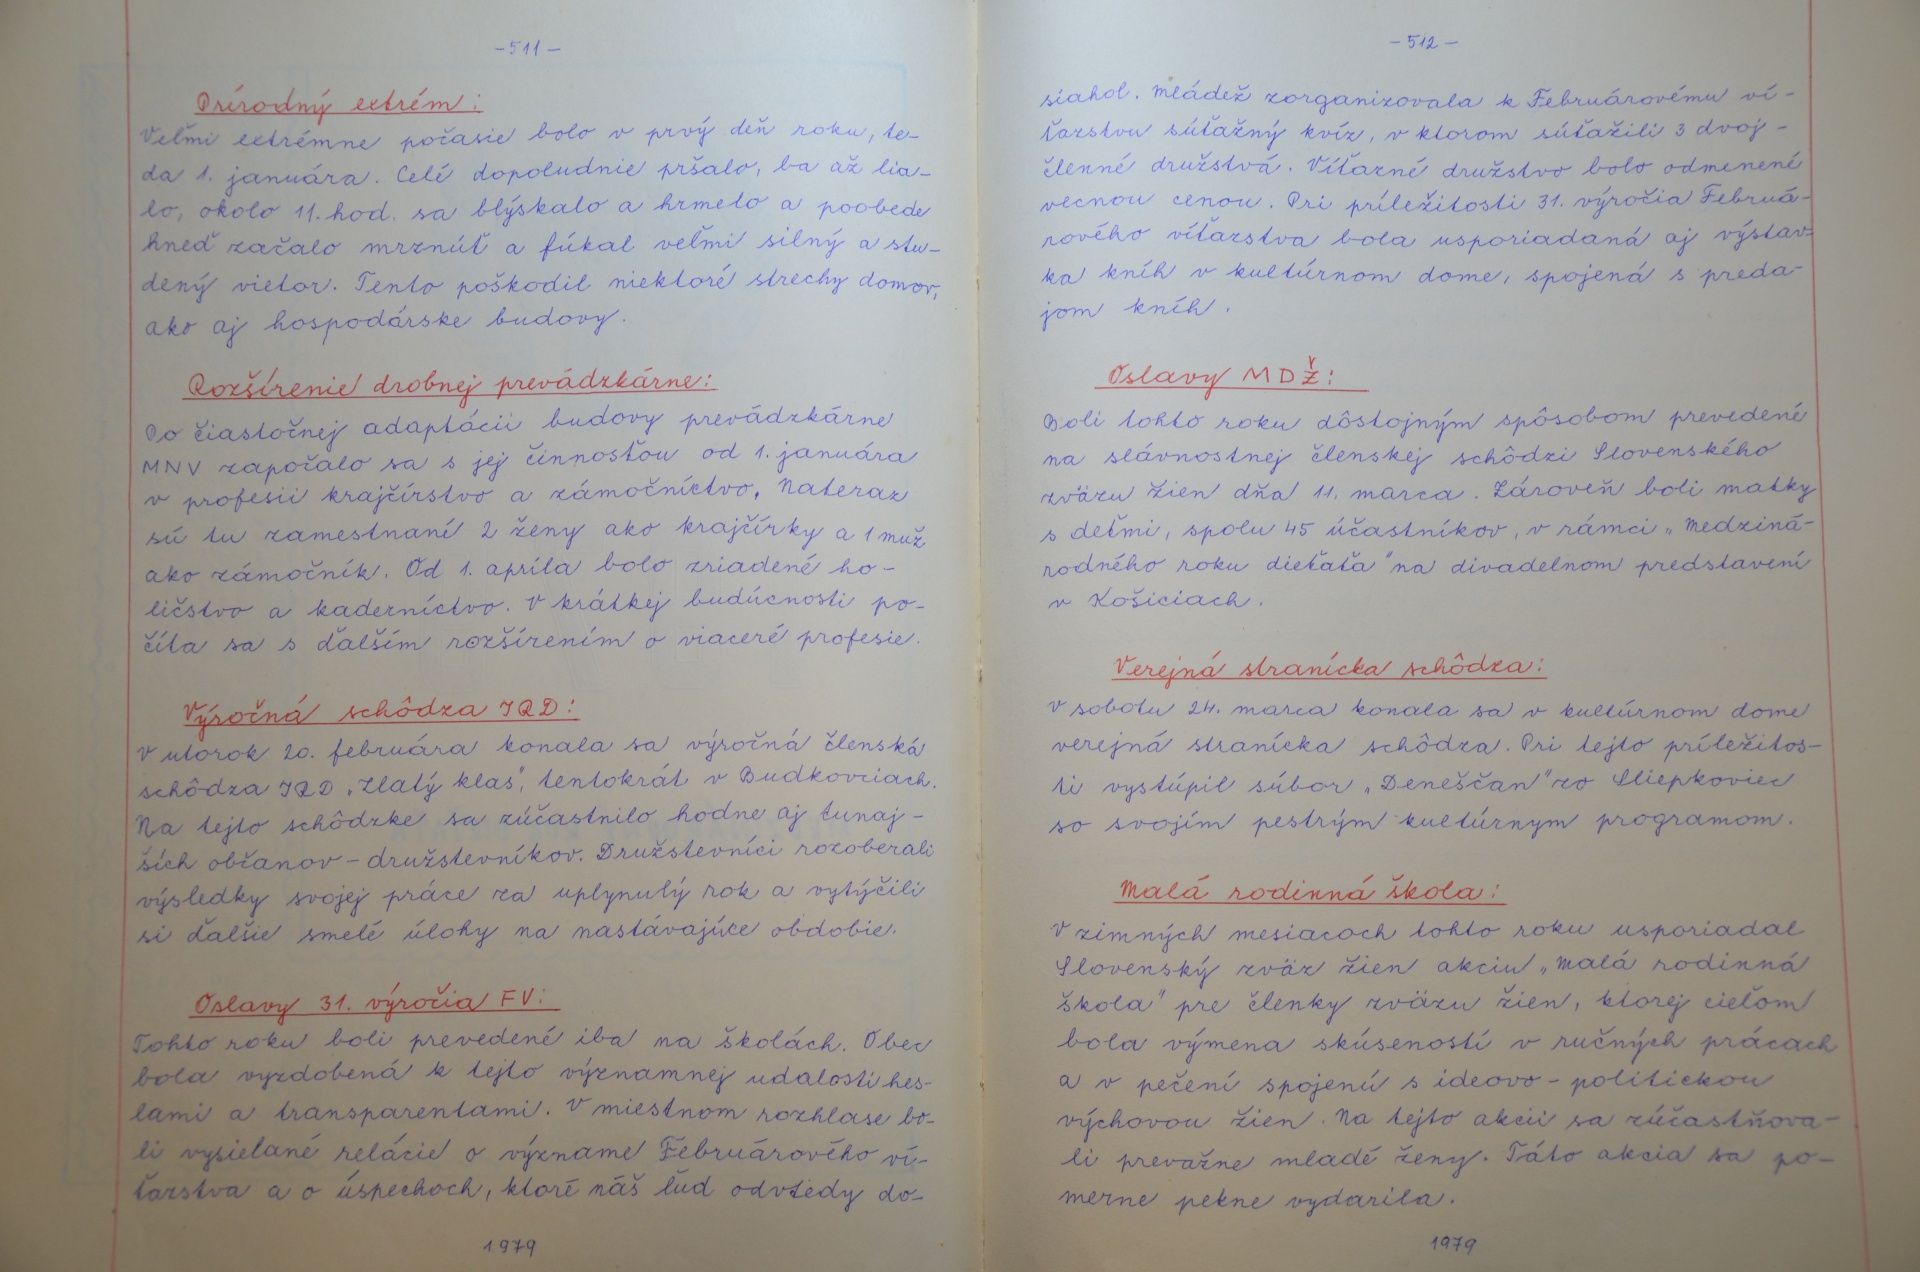 -511-
Prírodný extrém:
Veľmi extrémne počasie bolo v prvý deň roku, te-
da 1. januára. Celé dopoludnie pršalo, ba až lia-
lo, okolo 11. hod. sa blýskalo a hrmelo a poobede
hneď začalo mrznúť a fúkal veľmi silný a stu-
dený vietor. Tento poškodil niektoré strechy domov,
ako aj hospodárske budovy.
Rozšírenie drobnej prevádzkárne:
Po čiastočnej adaptácii budovy prevádzkárne
MNV započalo sa s jej činnosťou od 1. januára
v profesii krajčírstvo a zámočníctvo. Nateraz
sú tu zamestnaní 2 ženy ako krajčírky a 1 muž
ako zámočník. Od 1. apríla bolo zriadené ho-
ličstvo a kaderníctvo. V krátkej budúcnosti po-
číta sa s ďalším rozšírením o viaceré profesie.
Výročná schôdza JRD:
V utorok 20. februára konala sa výročná členská
schôdza JRD „Zlatý klas", tentokrát v Budkovciach.
Na tejto schôdzke sa zúčastnilo hodne aj tunaj-
ších občanov - družstevníkov. Družstevníci rozoberali
výsledky svojej práce za uplynulý rok a vytýčili
si ďalšie smelé úlohy na nastávajúce obdobie.
Oslavy 31. výročia FV:
Tohto roku boli prevedené iba na školách. Obec
bola vyzdobená k tejto významnej udalosti hes-
lami a transparentami. V miestnom rozhlase bo-
li vysielané relácie o význame Februárového ví-
ťazstva a o úspechoch, ktoré náš ľud odvtedy do-
1979
-512-
siahol. Mládež zorganizovala k Februárovému ví-
ťazstvu súťažný kvíz, v ktorom súťažili 3 dvoj-
členné družstvá. Víťazné družstvo bolo odmenené
vecnou cenou. Pri príležitosti 31. výročia Februá-
rového víťazstva bola usporiadaná aj výstav-
ka kníh v kultúrnom dome, spojená s preda-
jom kníh.
Oslavy MDŽ:
Boli tohto roku dôstojným spôsobom prevedené
na slávnostnej členskej schôdzi Slovenského
zväzu žien dňa 11. marca. Zároveň boli matky
s deťmi, spolu 45 účastníkov, v rámci „Medziná-
rodného roku dieťaťa" na divadelnom predstavení
v Košiciach.
Verejná stranícka schôdza:
V sobotu 24. marca konala sa v kultúrnom dome
verejná stranícka schôdza. Pri tejto príležitos-
ti vystúpil súbor „Deneščan" zo Sliepkoviec
so svojím pestrým kultúrnym programom.
Malá rodinná škola:
V zimných mesiacoch tohto roku usporiadal
Slovenský zväz žien akciu „Malá rodinná
škola" pre členky zväzu žien, ktorej cieľom
bola výmena skúseností v ručných prácach
a v pečení spojenú s ideovo-politickou
výchovou žien. Na tejto akcii sa zúčastňova-
li prevažne mladé ženy. Táto akcia sa po-
merne pekne vydarila.
1979